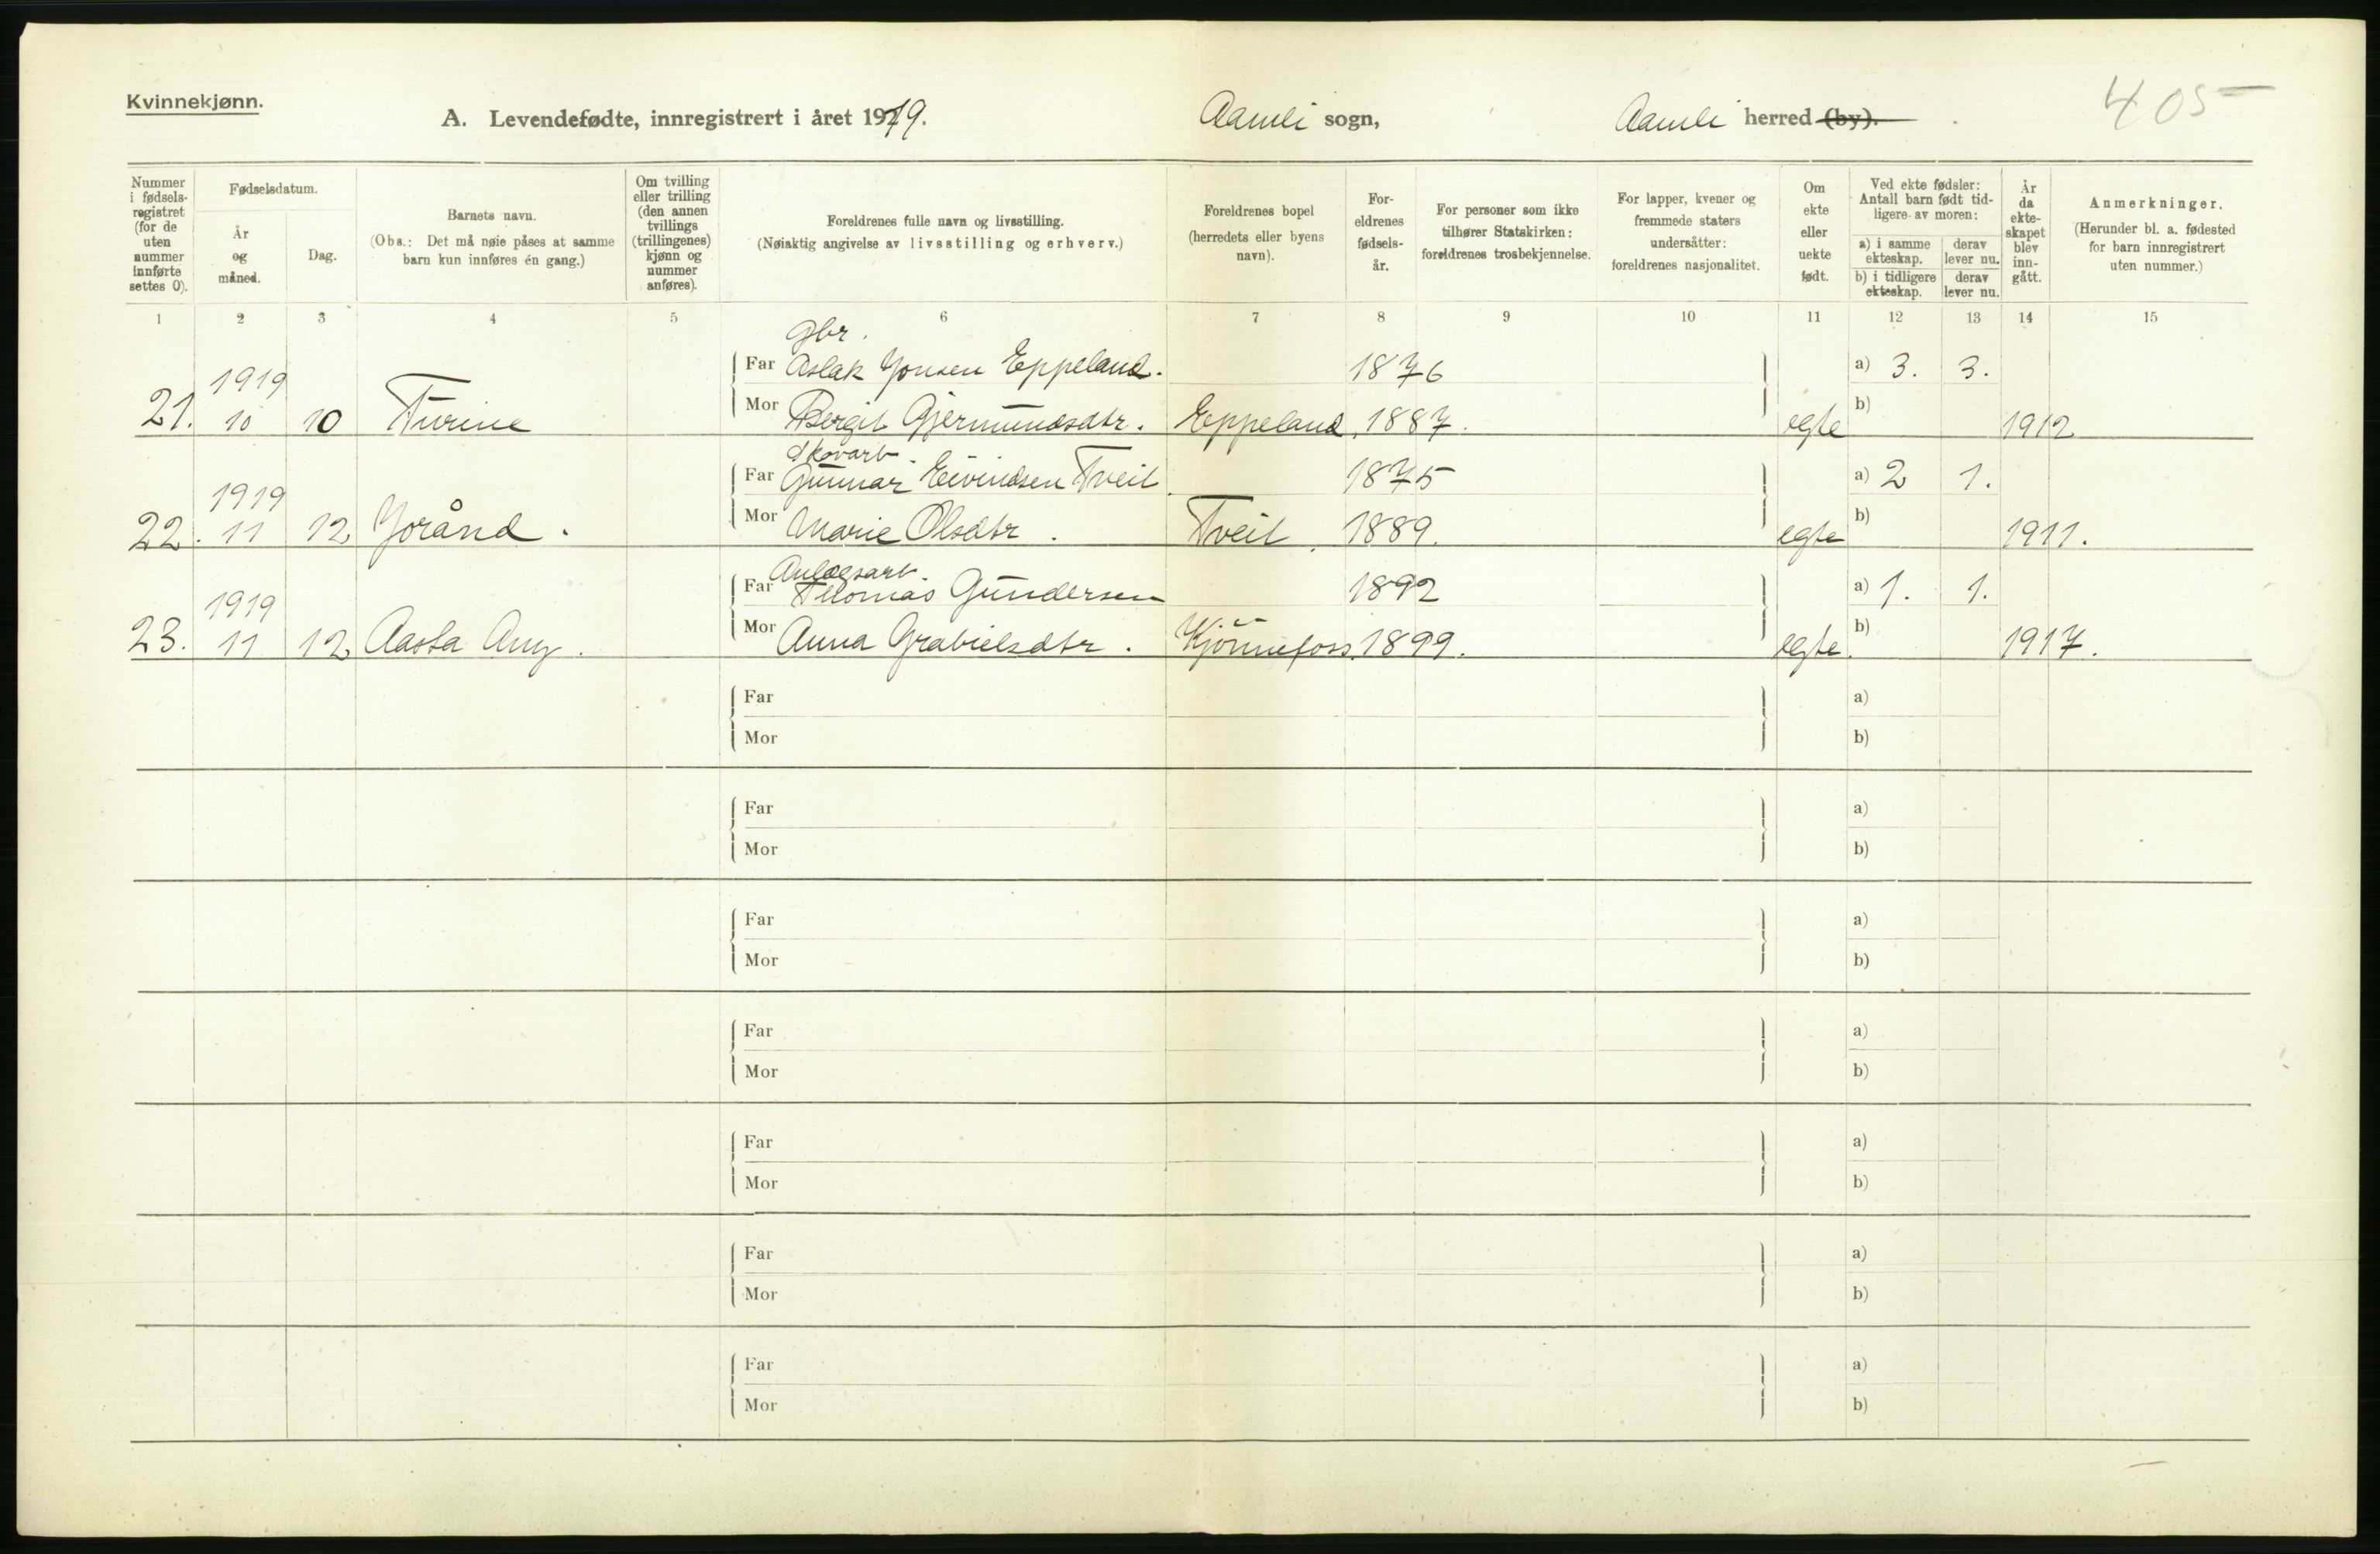 Kvinnekjønn.
A. Levendefødte, innregistrert i året 1919. Aamli sogn, Aamli herred (by). 405
Nummer i fødselsregistret (for de uten nummer innførte settes 0).
Fødselsdatum.
År og måned.
Dag.
Barnets navn.
(Obs.: Det må nøie påses at samme barn kun innføres én gang.)
Om tvilling eller trilling (den annen tvillings (trillingenes) kjønn og nummer anføres).
Foreldrenes fulle navn og livsstilling.
(Nøiaktig angivelse av livsstilling og erhverv.)
Foreldrenes bopel (herredets eller byens navn).
Foreldrenes fødselsår.
For personer som ikke tilhører Statskirken: foreldrenes trosbekjennelse.
For lapper, kvener og fremmede staters undersåtter: foreldrenes nasjonalitet.
Om ekte eller uekte født.
Ved ekte fødsler: Antall barn født tidligere av moren:
a) i samme ekteskap. derav lever nu.
b) i tidligere ekteskap. derav lever nu.
År da ekteskapet blev inngått.
Anmerkninger.
(Herunder bl. a. fødested for barn innregistrert uten nummer.)
1 2 3 4 5 6 7 8 9 10 11 12 13 14 15
Gbr.
1919 Far Aslak Jonsen Eppeland. 1876 a) 3. 3.
21. 10 10 Turine Mor Bergit Gjermundsdtr. Eppeland. 1887. egte b) 1912
Skovarb.
1919 Far Gunnar Eivindsen Tveit 1875 a) 2 1.
22. 11 12 Joránd. Mor Marie Olsdtr. Tveit. 1889. egte b) 1911.
Anlægsarb.
1919 Far Thomas Gundersen 1892 a) 1. 1.
23. 11 12 Aasta Any. Mor Anna Grabielsdtr. Kjönnefoss. 1899. egte. b) 1917.
Far a)
Mor b)
Far a)
Mor b)
Far a)
Mor b)
Far a)
Mor b)
Far a)
Mor b)
Far a)
Mor b)
Far a)
Mor b)